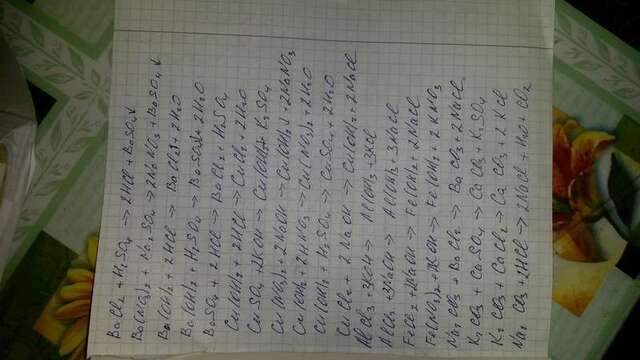 BaCl2 + H2SO4 → 2HCl + BaSO4↓
Ba(NO3)2 + Na2SO4 → 2NaNO3 + BaSO4↓
Ba(OH)2 + 2HCl → BaCl2 + 2H2O
Ba(OH)2 + H2SO4 → BaSO4↓ + 2H2O
BaSO4 + 2HCl → BaCl2 + H2SO4
Cu(OH)2 + 2HCl → CuCl2 + 2H2O
CuSO4 + 2KOH → Cu(OH)2 + K2SO4
Cu(NO3)2 + 2NaOH → Cu(OH)2↓ + 2NaNO3
Cu(OH)2 + 2HNO3 → Cu(NO3)2 + 2H2O
Cu(OH)2 + H2SO4 → CuSO4 + 2H2O
CuCl2 + 2NaOH → Cu(OH)2 + 2NaCl
AlCl3 + 3KOH → Al(OH)3 + 3KCl
AlCl3 + 3NaOH → Al(OH)3 + 3NaCl
FeCl2 + 2NaOH → Fe(OH)2 + 2NaCl
Fe(NO3)2 + 2KOH → Fe(OH)2 + 2KNO3
Na2CO3 + BaCl2 → BaCO3 + 2NaCl
K2CO3 + CaSO4 → CaCO3 + K2SO4
K2CO3 + CaCl2 → CaCO3 + 2KCl
Na2CO3 + 2HCl → 2NaCl + H2O + CO2